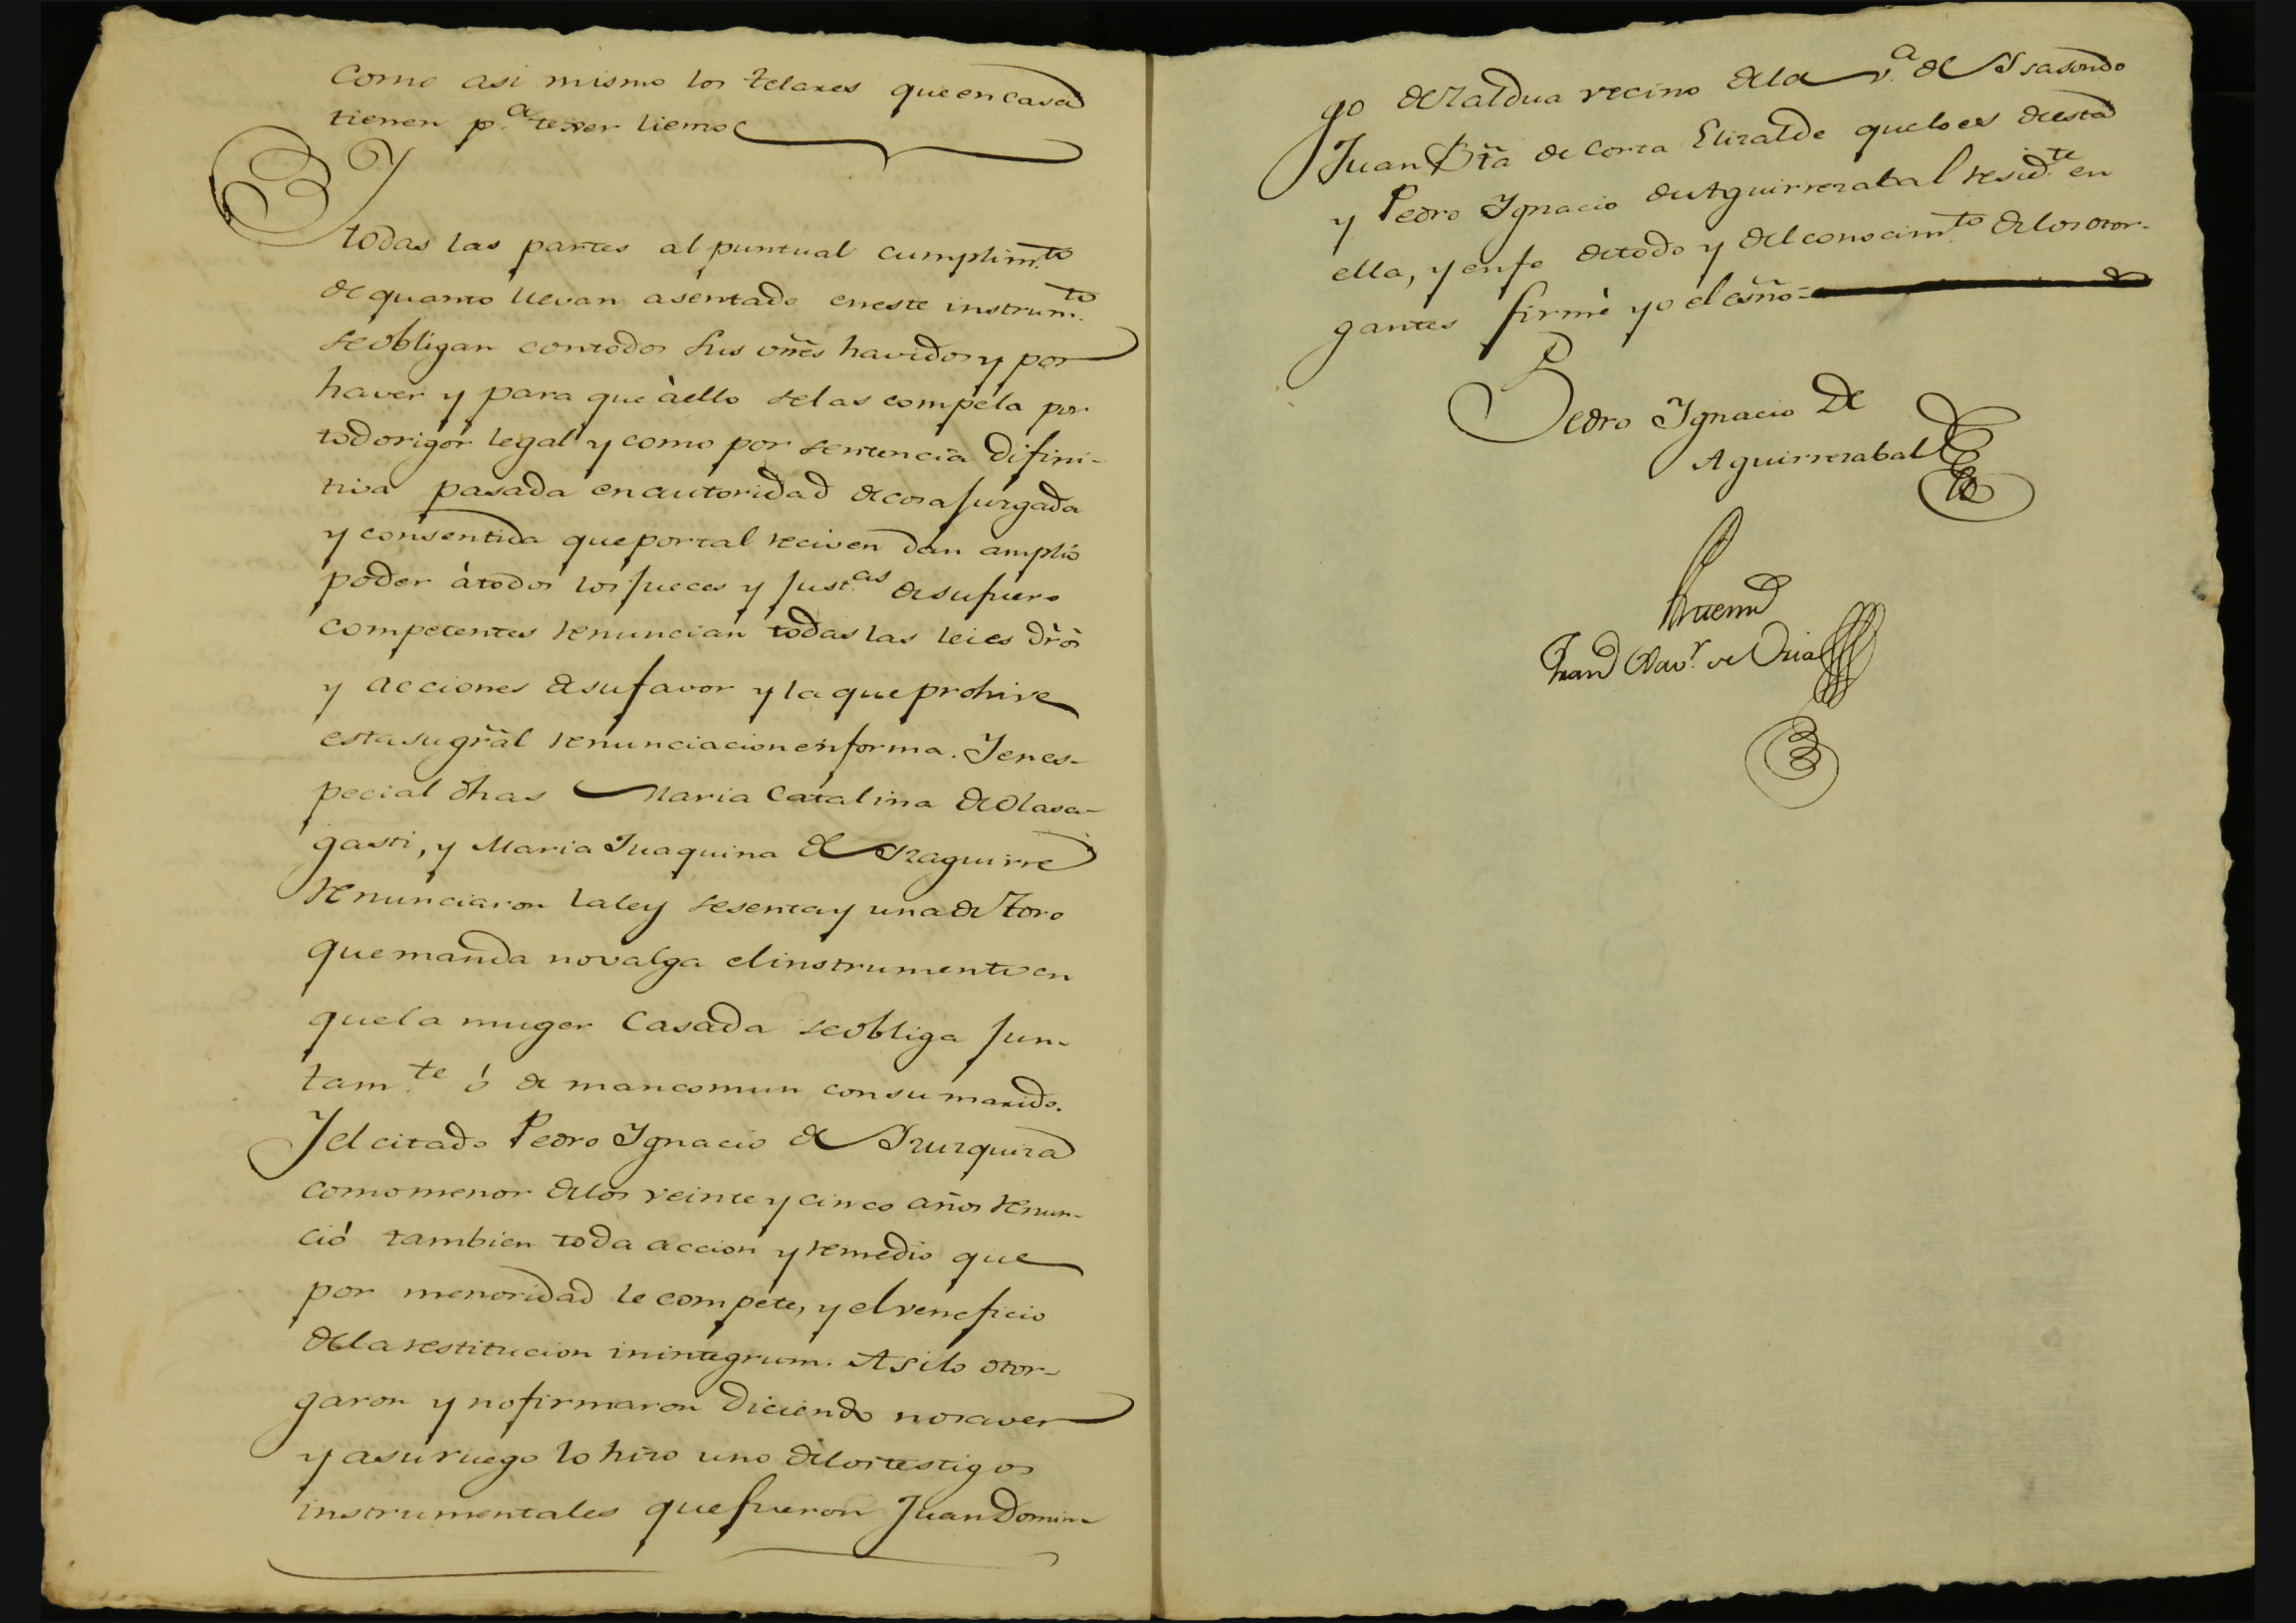 Como asi mismo los telares que en casa
tienen p.ª texer liemo
Y
todas las partes al puntual cumplim.to
de quanto llevan asentado en este instrum.to
se obligan con todos sus vñes havidos y por
haver y para que à ello se las compela por
todo rigor legal y como por sentencia difini-
tiva pasada en autoridad de cosa juzgada
y consentida que por tal reciven dan amplio
poder à todos los jueces y just.as de su fuero
competentes renuncian todas las leies dr̃os
y acciones de su favor y la que prohive
esta su gr̃al renunciacion en forma. Y en es-
pecial dhas Maria Catalina de Olasa-
gasti, y Maria Juaquina de Yzaguirre
renunciaron la ley sesenta y una de Toro
que manda no valga el instrumento en
que la muger Casada se obliga jun-
tam.te ó de mancomun con su marido.
Y el citado Pedro Ygnacio de Yzuzquiza
como menor de los veinte y cinco años renun-
ció tambien toda accion y remedio que
por menoridad le compete, y el veneficio
de la restitucion in integrum. Asi lo otor-
garon y no firmaron diciendo no saver
y a su ruego lo hizo uno de los testigos
instrumentales que fueron Juan Domin-
go de Zaldua vecino de la v.ª de Ysasondo
Juan Bt̃a de Corta Elizalde que lo es de esta
y Pedro Ygnacio de Aguirrezabal resid.te en
ella, y en fe de todo y del conocim.to de los otor-
gantes firmè yo el esño=
Pedro Ygnacio De
Aguirrezabal
Antemi
Fran.co Xav.r de Oria